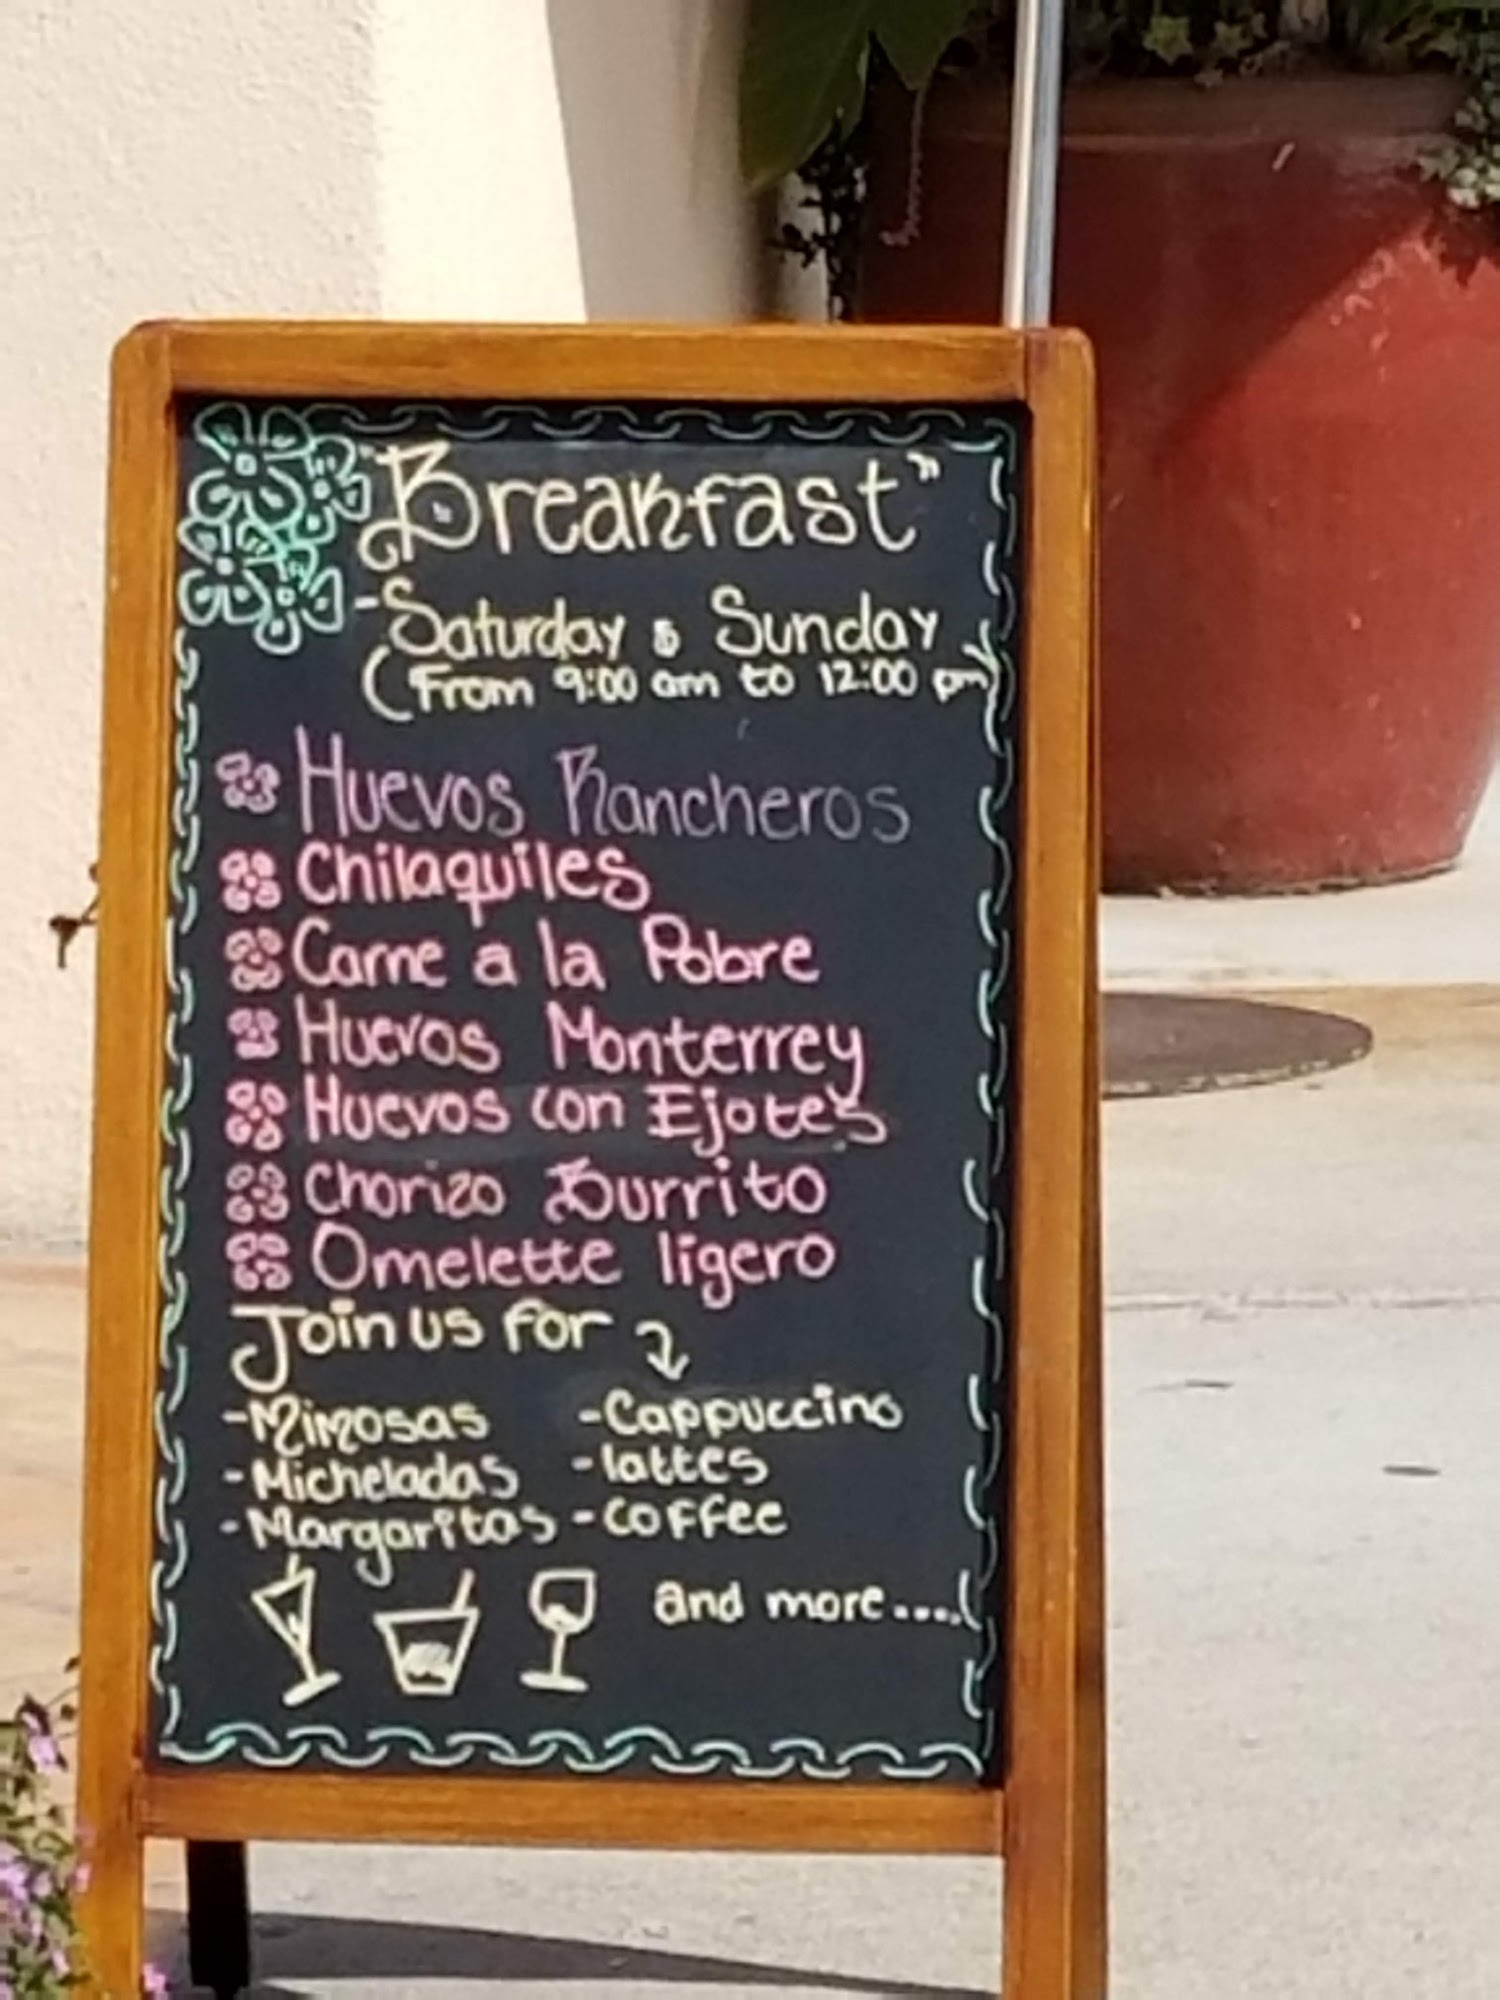 "Breakfast"
-Saturday & Sunday
(From 9:00 am to 12:00 pm)
Huevos Rancheros
Chilaquiles
Carne a la Pobre
Huevos Monterrey
Huevos con Ejotes
Chorizo Burrito
Omelette ligero
Join us for
-Mimosas -Cappuccino
-Micheladas -lattes
-Margaritas -Coffee
and more.....